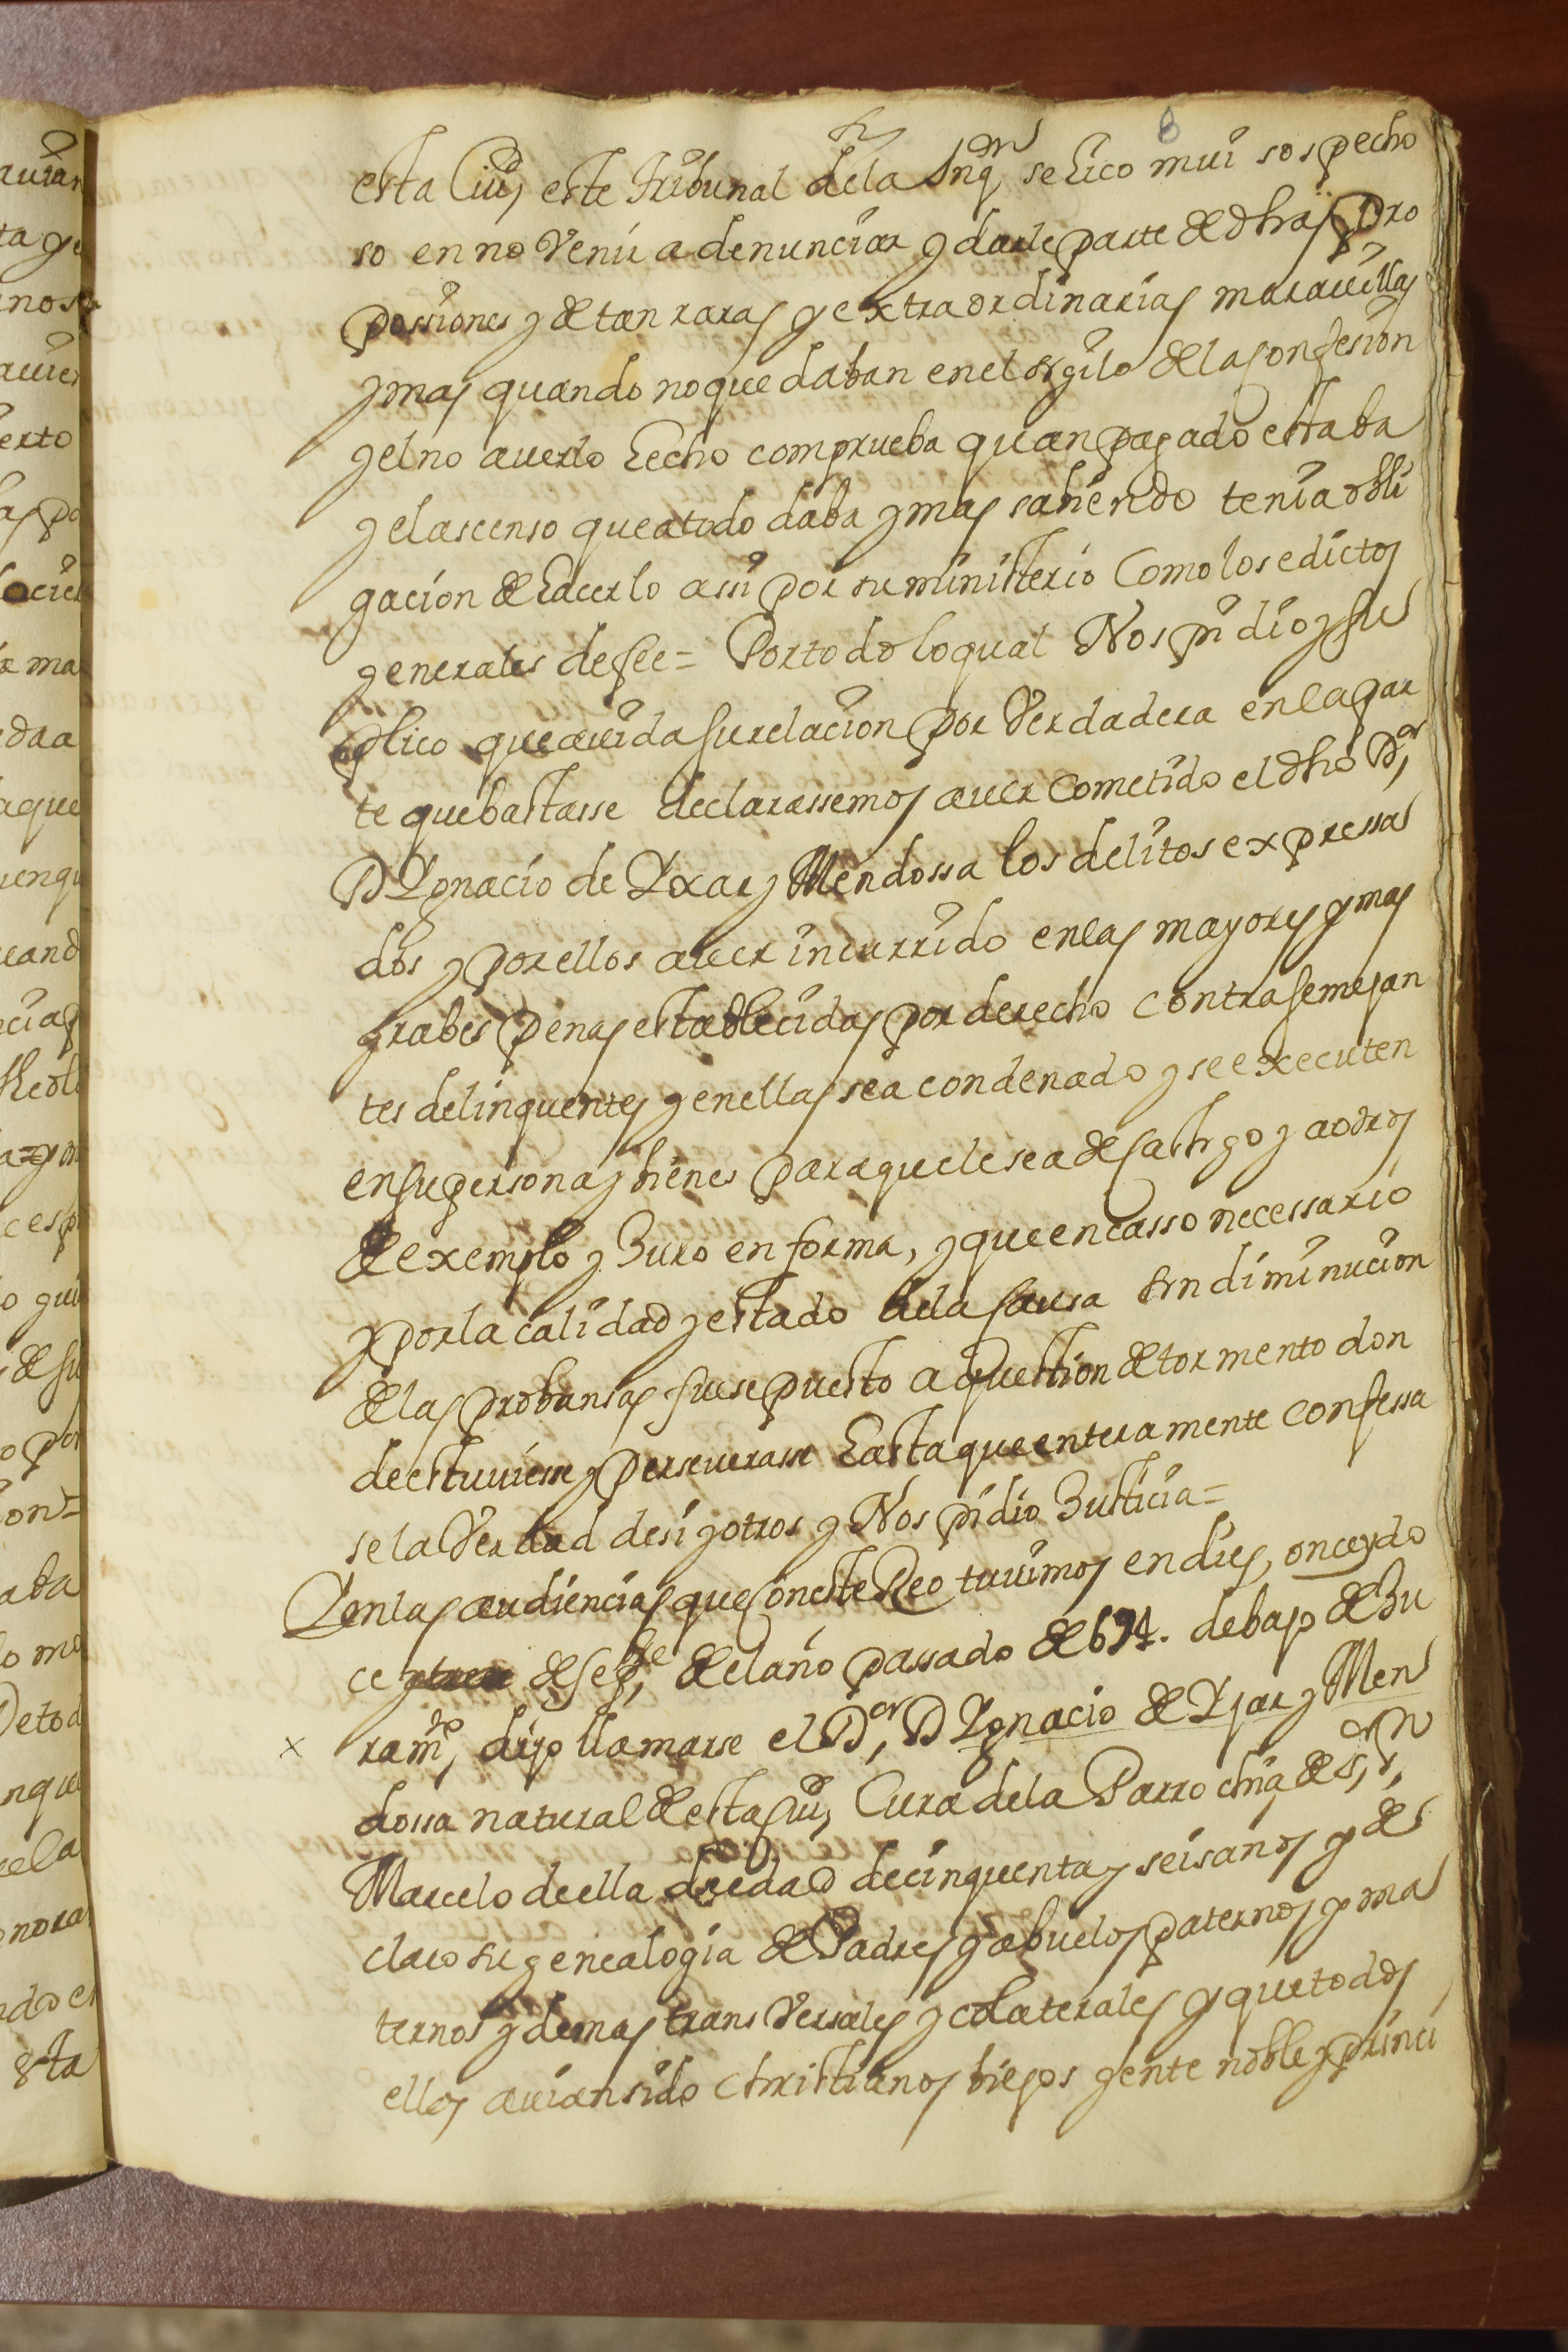 8
esta Ciud, este tribunal dela Inqn se hico mui sospecho
so en no Venir a denunciar y darle parte de dhas Pro
possiones y de tan raras y extraordinarias marauillas
y mas quando no quedaban en el sigilo de la Confesion
y el no auerlo hecho comprueba quan pagado estaba
y el ascenso que a todo daba y mas sabiendo tenia obli
gacion de hacerlo assi por su ministerio Como los edictos
generales de fee = Por todo lo qual Nos pidio y su
plico que auida su relacion por Verdadera en la par
te que bastasse declarassemos auer Cometido el dho Dor,
D Ygnacio de Yxar y Mendossa los delitos expressa
dos y por ellos auer incurrido en las mayores y mas
grabes penas establecidas por derecho contra semejan
tes delinquentes y en ellas sea condenado y se executen
en su persona y bienes para que le sea de Castigo y a otros
de exemplo y Juro en forma, y que en casso necessario
y por la calidad y estado de la Causa sin diminucion
de las probansas fuese puesto a question de tormento don
de estuuiesse y perseuerasse hasta que enteramente confessa
se la Verdad de si y otros y Nos pidio Justicia =
Y en las audiencias que Con este Reo tuuimos en dies, once y do
ce de Sepbe, del año passado de 694. debajo de Ju
x ramto, dijo llamarse el Dor, D Ygnacio de Yjar y Men
dossa natural de esta Ciud, Cura de la Parrochia de Sor, Sn,
Marcelo de ella de edad de cinquenta y seis años y de
claro su genealogia de Padres y abuelos paternos y ma
ternos y demas transVersales y colaterales y que todos
ellos auian sido christianos biejos gente noble y princi